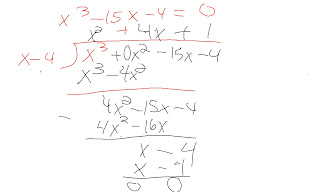 x³ - 15x - 4 = 0
x² + 4x + 1
x - 4 ) x³ + 0x² - 15x - 4
x³ - 4x²
4x² - 15x - 4
- 4x² - 16x
x - 4
x - 4
0 0